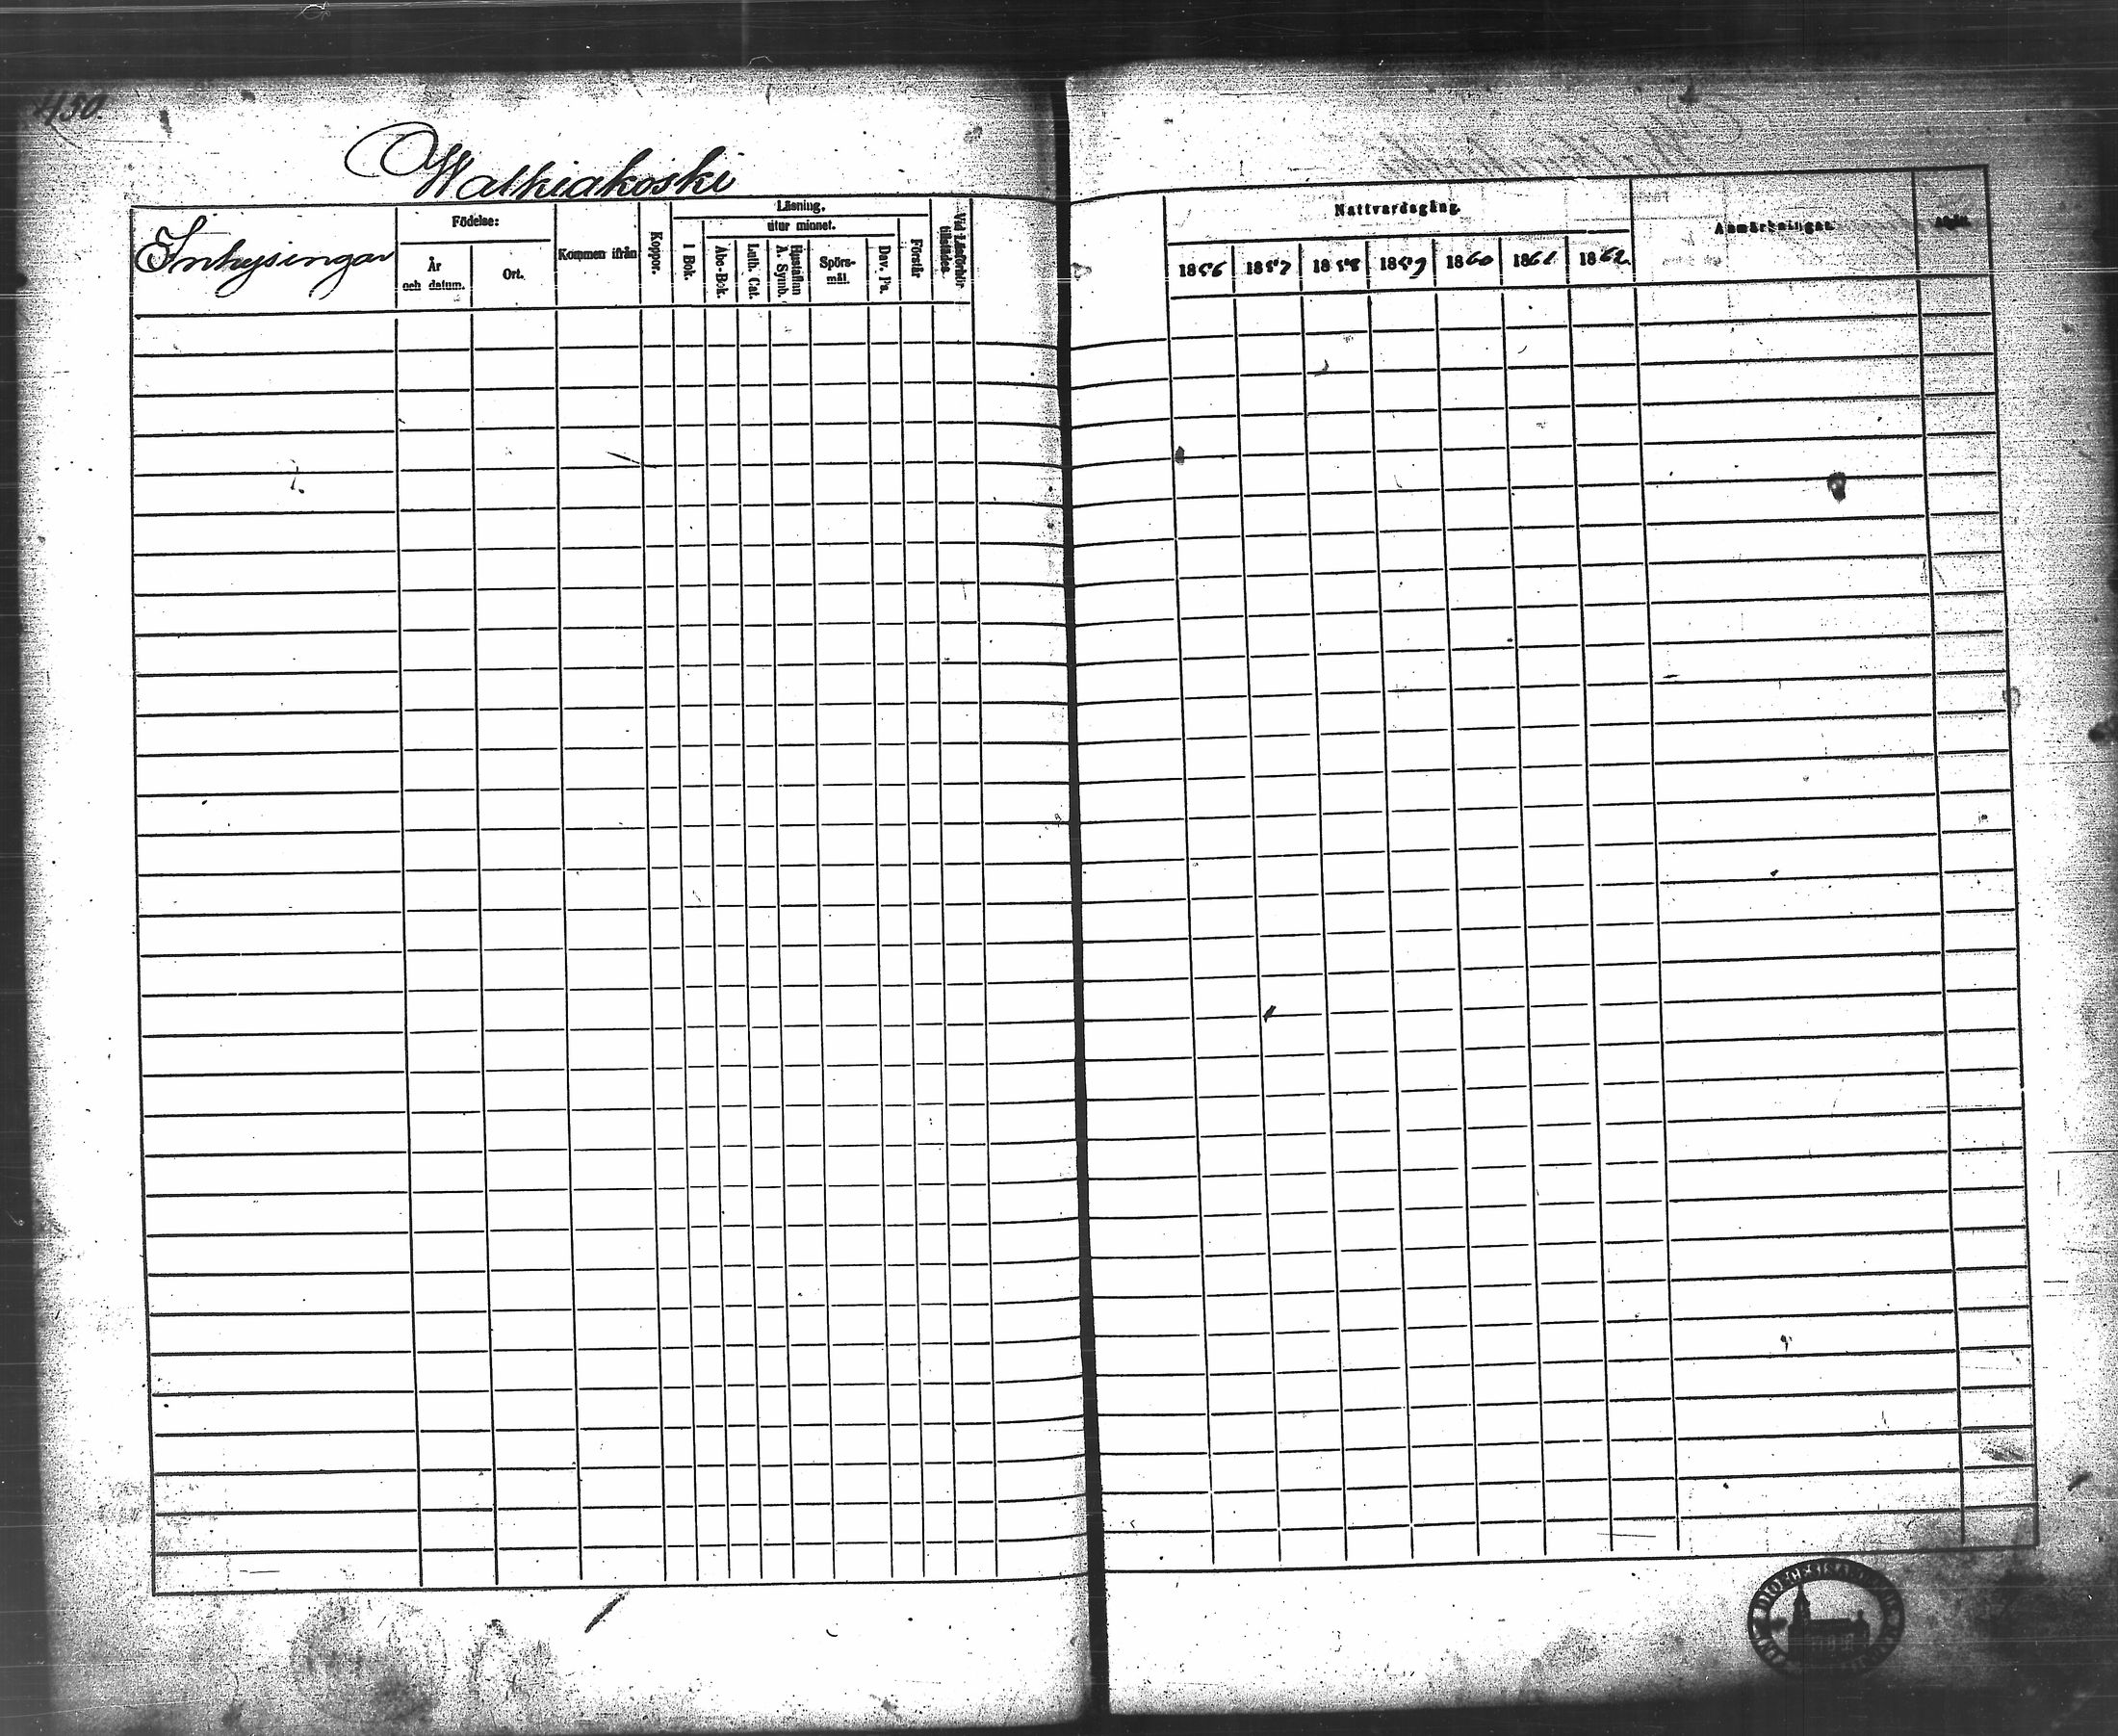 450.
Walkiakoski
Inhysingar
Födelse:
År
och datum.
Ort.
Kommen ifrån
Koppor.
Läsning,
utur minnet.
I Bok.
Abc-Bok.
Luth. Cat.
Hustaflan
A. Symb.
Spörs-
mål.
Dav. Ps.
Förstår
Vid Läsförhör
tillstädes.
Nattvardsgång.
1856 1857 1858 1859 1860 1861 1862.
Anmärkningar.